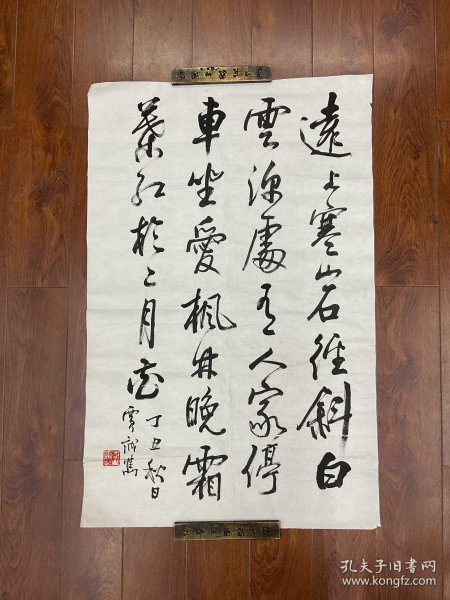 遠上寒山石徑斜白
雲深處有人家停
車坐愛楓林晚霜
葉紅於二月花
丁丑秋日
孔夫子旧书网
www.kongfz.com